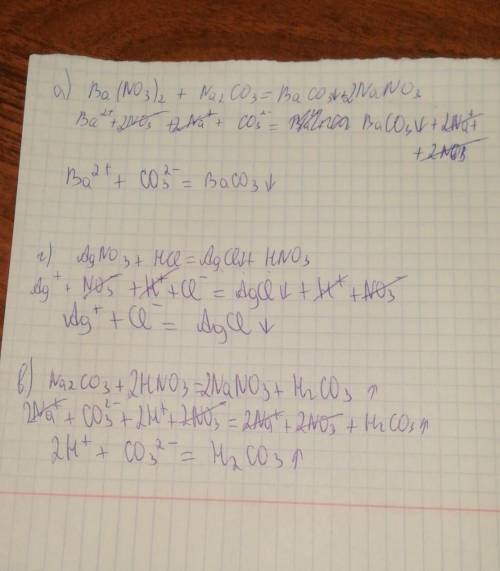 а) Ba(NO3)2 + Na2CO3 = BaCO3↓ + 2NaNO3
Ba²⁺ + 2NO3⁻ + 2Na⁺ + CO3²⁻ = BaCO3↓ + 2Na⁺
+ 2NO3⁻
Ba²⁺ + CO3²⁻ = BaCO3↓
г) AgNO3 + HCl = AgCl↓ + HNO3
Ag⁺ + NO3⁻ + H⁺ + Cl⁻ = AgCl↓ + H⁺ + NO3⁻
Ag⁺ + Cl⁻ = AgCl↓
в) Na2CO3 + 2HNO3 = 2NaNO3 + H2CO3↑
2Na⁺ + CO3²⁻ + 2H⁺ + 2NO3⁻ = 2Na⁺ + 2NO3⁻ + H2CO3↑
2H⁺ + CO3²⁻ = H2CO3↑